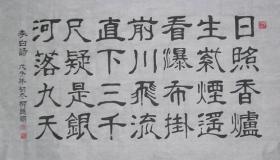 日照香爐
生紫煙遥
看瀑布掛
前川飛流
直下三千
尺疑是銀
河落九天
李白詩 戊子年初冬